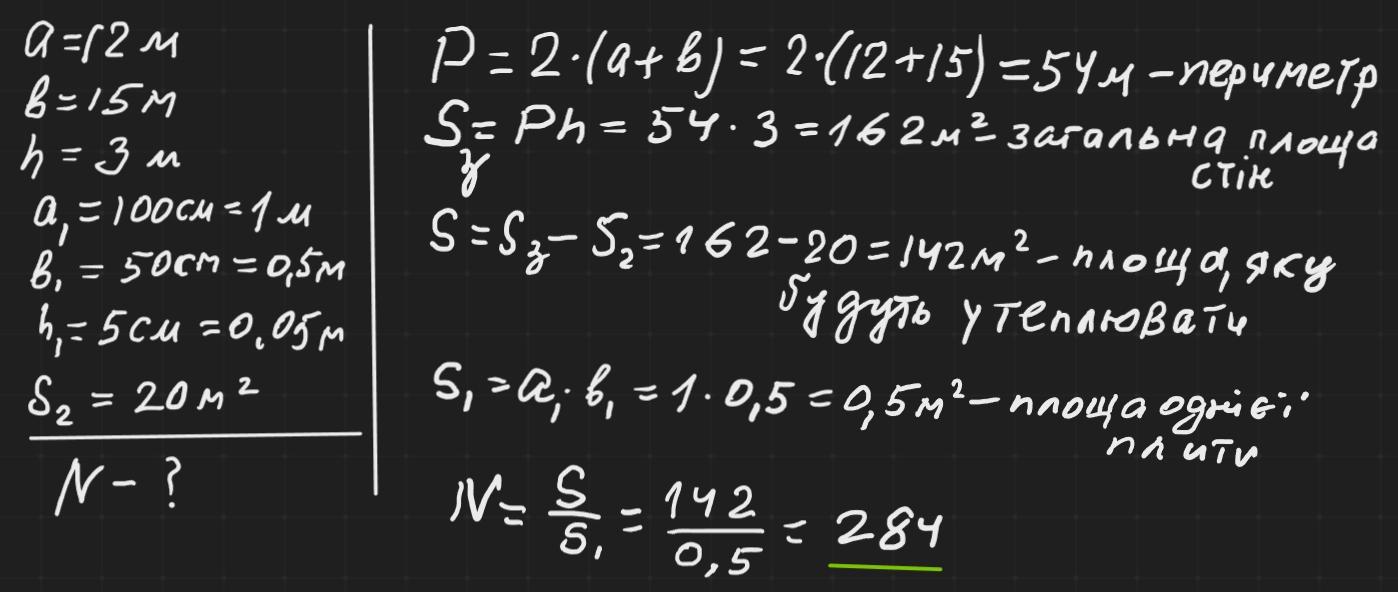 a = 12 м
в = 15 м
h = 3 м
a₁ = 100 см = 1 м
в₁ = 50 см = 0,5 м
h₁ = 5 см = 0,05 м
S₂ = 20 м²
N - ?
P = 2·(a + в) = 2·(12 + 15) = 54 м – периметр
S₃ = Ph = 54 · 3 = 162 м² – загальна площа
стін
S = S₃ – S₂ = 162 – 20 = 142 м² – площа, яку
будуть утеплювати
S₁ = a₁ · в₁ = 1 · 0,5 = 0,5 м² – площа однієї
плити
N = S/S₁ = 142/0,5 = 284